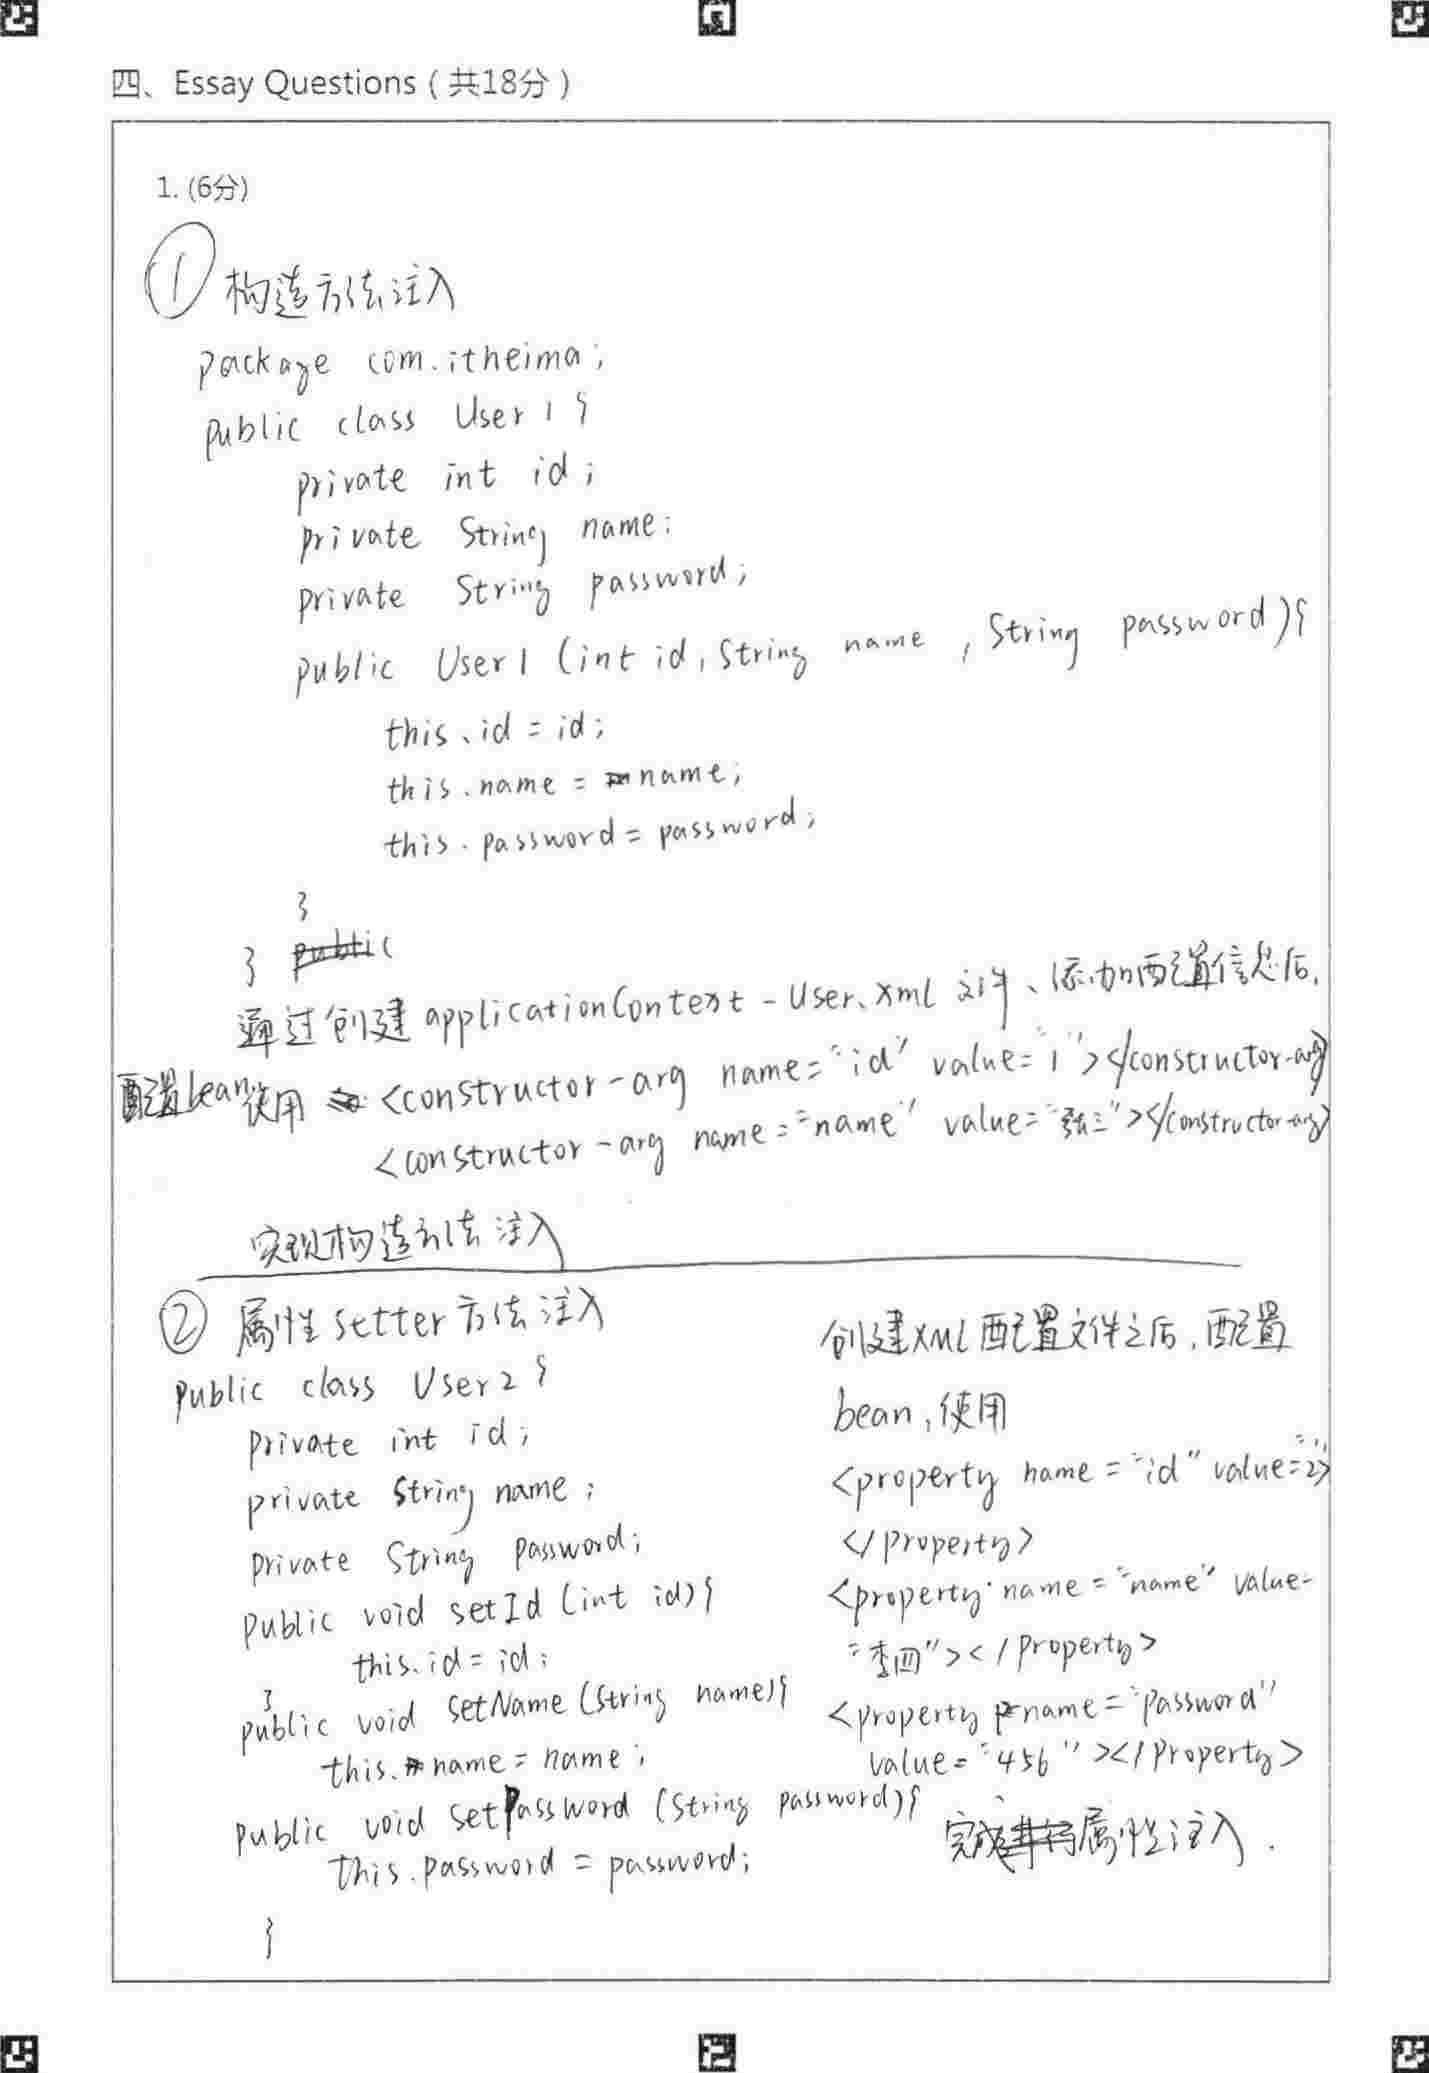 四、Essay Questions（共18分）
1. (6分)
① 构造方法注入
package com.itheima;
public class User1 {
private int id;
private String name;
private String password;
public User1 (int id, String name , String password){
this.id = id;
this.name = name;
this.password = password;
}
}
通过创建 applicationContext-User.xml 文件、添加配置信息后,
配置bean使用 <constructor-arg name="id" value="1"></constructor-arg>
<constructor-arg name="name" value="张三"></constructor-arg>
实现构造方法注入
② 属性 setter 方法注入
public class User2 {
private int id;
private String name;
private String password;
public void setId (int id){
this.id = id;
}
public void setName (String name){
this.name = name;
public void setPassword (String password){
this.password = password;
}
创建XML配置文件之后,配置
bean,使用
<property name="id" value="2">
</property>
<property name="name" value=
"李四"></property>
<property name="password"
value="456"></property>
完成属性注入.